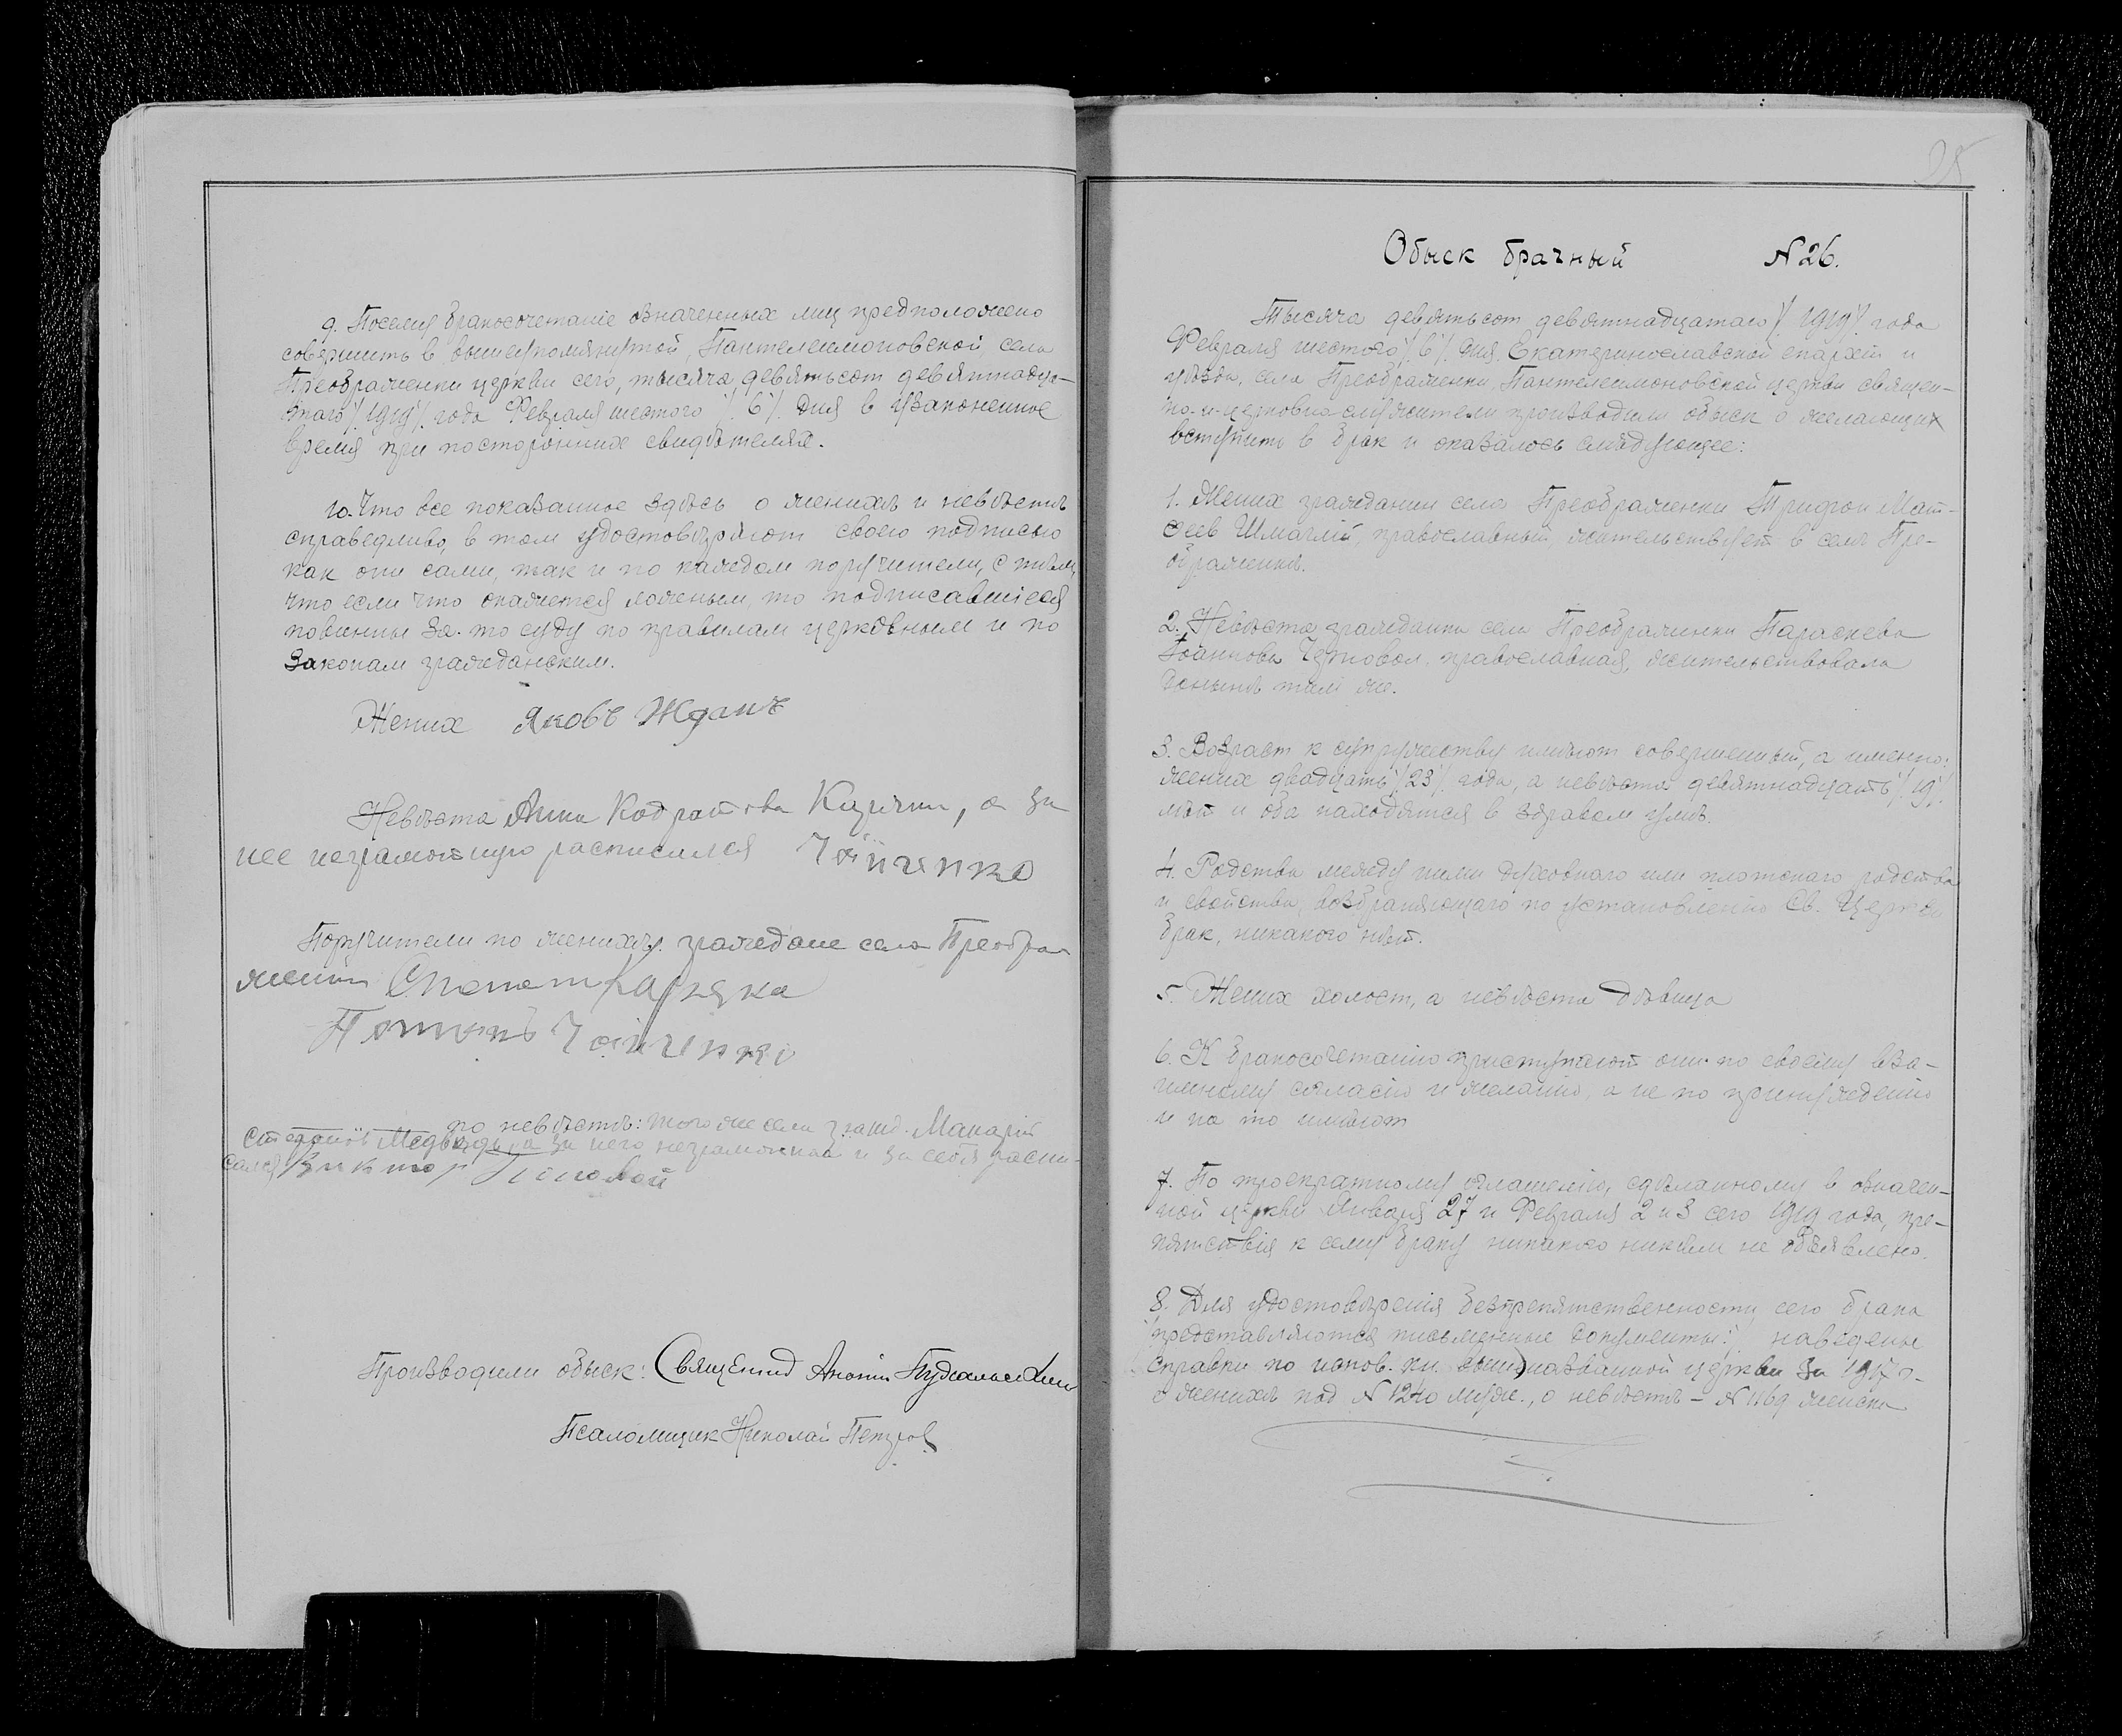 9. Посему бракосочетаніе означенных лиц предположено
совершить в вышеупомянутой, Пантелеимоновской села
Преображенки церкви сего, тысяча девятьсот девятнадца-
таго /1919/ года Февраля шестого /6/ дня в узаконенное
время при посторонних свидѣтелях.
10. Что все показанное здѣсь о женихѣ и невѣстѣ
справедливо, в том удостовѣряют своею подписью
как они сами, так и по каждом поручители, с тѣм,
что если что окажется ложным, то подписавшіеся
повинны за то суду по правилам церковным и по
законам гражданским.
Жених Яковъ Жданъ
Невѣста Анна, а за
нее неграмотную расписался
Поручители по женихѣ: граждане села Преобра-
женки
по невѣстѣ: того же села гражд. Макарій
Стефанов Медвѣдь, а за него неграмотнаго и за себя распи-
сался Виктор
Производили обыск: Священник
Псаломщик Николай Петров
25
Обыск брачный N 26.
Тысяча девятьсот девятнадцатаго /1919/ года
Февраля шестого /6/ дня, Екатеринославской епархіи и
уѣзда, села Преображенки, Пантелеимоновской церкви священ-
но-и-церковно служители производили обыск о желающих
вступить в брак и оказалось слѣдующее:
1. Жених гражданин села Преображенки Трифон Мат-
феев Шмаглій, православный, жительствует в селѣ Пре-
ображенкѣ.
2. Невѣста, гражданка села Преображенки Параскева
Іоаннова, православная, жительствовала
донынѣ там же.
3. Возраст к супружеству имѣют совершенный, а именно:
жених двадцать /23/ года, а невѣста девятнадцать /19/
лѣт и оба находятся в здравом умѣ.
4. Родства между ними духовнаго или плотскаго родства
и свойства, возбраняющаго по установленію Св. Церкви
брак, никакого нѣт.
5. Жених холост, а невѣста дѣвица
6. К бракосочетанію приступают они по своему вза-
имному согласію и желанію, а не по принужденію
и на то имѣют
7. По троекратному оглашенію, сдѣланному в означен-
ной церкви Января 27 и Февраля 2 и 3 сего 1919 года, пре-
пятствія к сему браку никакого никѣм не объявлено.
8. Для удостовѣренія безпрепятственности сего брака
"представляются письменные документы:" наведены
справки по испов. кн. вышеназванной церкви за 1917 г.
о женихѣ под N 1240 муж., о невѣстѣ - N 1169 женск.